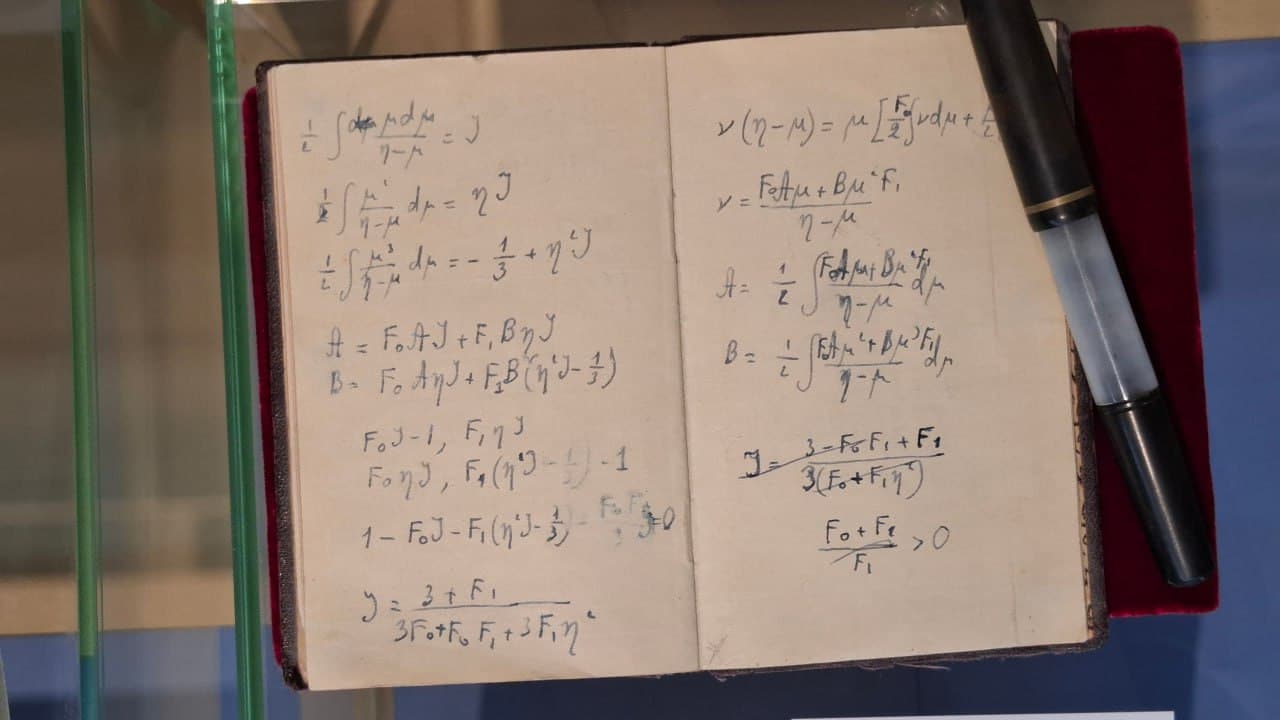 ½ ∫ μdμ/(η-μ) = J
½ ∫ μ²/(η-μ) dμ = ηJ
½ ∫ μ³/(η-μ) dμ = - 1/3 + η²J
A = F₀AJ + F₁BηJ
B = F₀AηJ + F₁B(η²J - 1/3)
F₀J-1, F₁ηJ
F₀ηJ, F₁(η²J - 1/3) - 1
1 - F₀J - F₁(η²J - 1/3) - =0
J = (3 + F₁)/(3F₀+F₀F₁+3F₁η²)
ν(η-μ) = μ[F₀/2 ∫νdμ +
ν = (F₀Aμ + Bμ²F₁)/(η-μ)
A = ½ ∫ (F₀Aμ + Bμ²F₁)/(η-μ) dμ
B = ½ ∫ (F₀Aμ² + Bμ³F₁)/(η-μ) dμ
J = (3 - F₀F₁ + F₁)/(3(F₀+F₁η²))
(F₀+F₁)/F₁ > 0